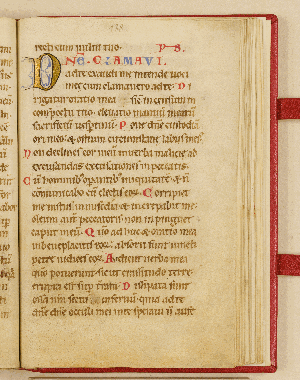 recti cum uultu tuo. P S.
DNE CLAMAVI
ad te exaudi me intende uoci
mee cum clamauero ad te. Di
rigatur oratio mea sic incensum in
conspectu tuo eleuatio manuum mearum
sacrificiu uespertinu. Pone dne custodia
ori meo & ostium circumstantie labiis meis
Non declines cor meu in uerba malicie ad
excusandas excusationes in peccatis
Cu hominib; operantib; iniquitate & n
comunicabo cu electis eor. Corripiet
me iustus in misericordia & increpabit me
oleum aut peccatoris non inpinguet
caput meu. Quo adhuc & oratio mea
in beneplacitis eor. absorti sunt iuncti
petre iudices eor. Audient uerba mea
quo potuerunt sicut crassitudo terre
erupta est sup tram. Dissipata sunt
ossa nra secus infernu quia ad te
dne dne oculi mei in te speraui n aufe